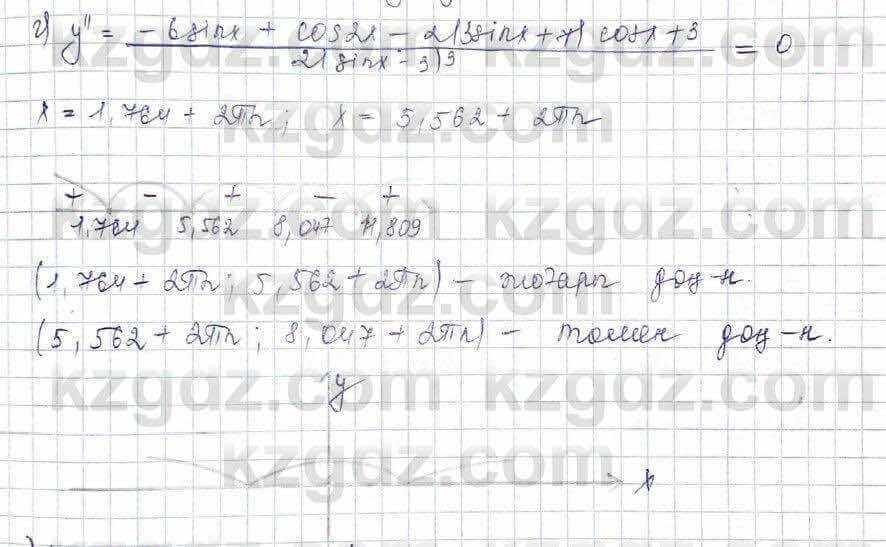 г) y'' = (-6sinx + cos2x - 2(3sinx+7) cosx+3) / (2(sinx-3)^3) = 0
x = 1,764 + 2πn; x = 5,562 + 2πn
+ - + - +
1,764 5,562 8,047 11,809
(1,764 + 2πn; 5,562 + 2πn) - жоғары дөң-н.
(5,562 + 2πn; 8,047 + 2πn) - томен дөң-н.
y
x
kzgdz.com kzgdz.com
kzgdz.com
kzgdz.com kzgdz.com
kzgdz.com
kzgdz.com kzgdz.com
kzgdz.com